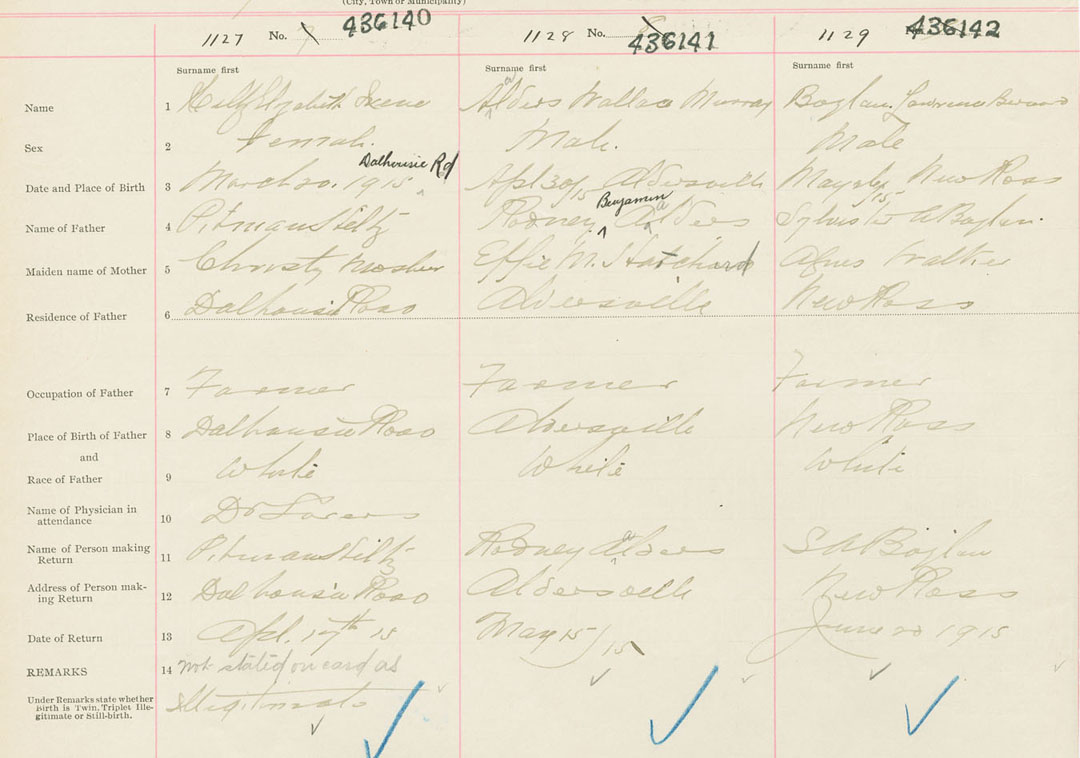 (City, Town or Municipality)
1127 No. 436140
1128 No. 436141
1129 436142
Surname first Surname first Surname first
Name 1 Elizabeth Irene Alders Wallace Murray Boylan Lawrence Bernard
Sex 2 Female. Male. Male
Dalhousie Rd
Date and Place of Birth 3 March 20. 1915 Apl 30/15 Aldersville May 15 New Ross
Benjamin
Name of Father 4 Pitman Rodney Alders Sylvester A Boylan.
Maiden name of Mother 5 Christy Mosher Effie M. Hatchard Agnes Walker
Residence of Father 6 Dalhousie Road Aldersville New Ross
Occupation of Father 7 Farmer Farmer Farmer
Place of Birth of Father 8 Dalhousie Road Aldersville New Ross
and
Race of Father 9 White White White
Name of Physician in
attendance 10 Dr
Name of Person making
Return 11 Pitman Rodney Alders S A Boylan
Address of Person mak-
ing Return 12 Dalhousie Road Aldersville New Ross
Date of Return 13 Apl. 17th 15 May 15/15 June 20 1915
REMARKS 14 not stated on card as
Under Remarks state whether
Birth is Twin, Triplet Ille-
gitimate or Still-birth.
Illegitimate